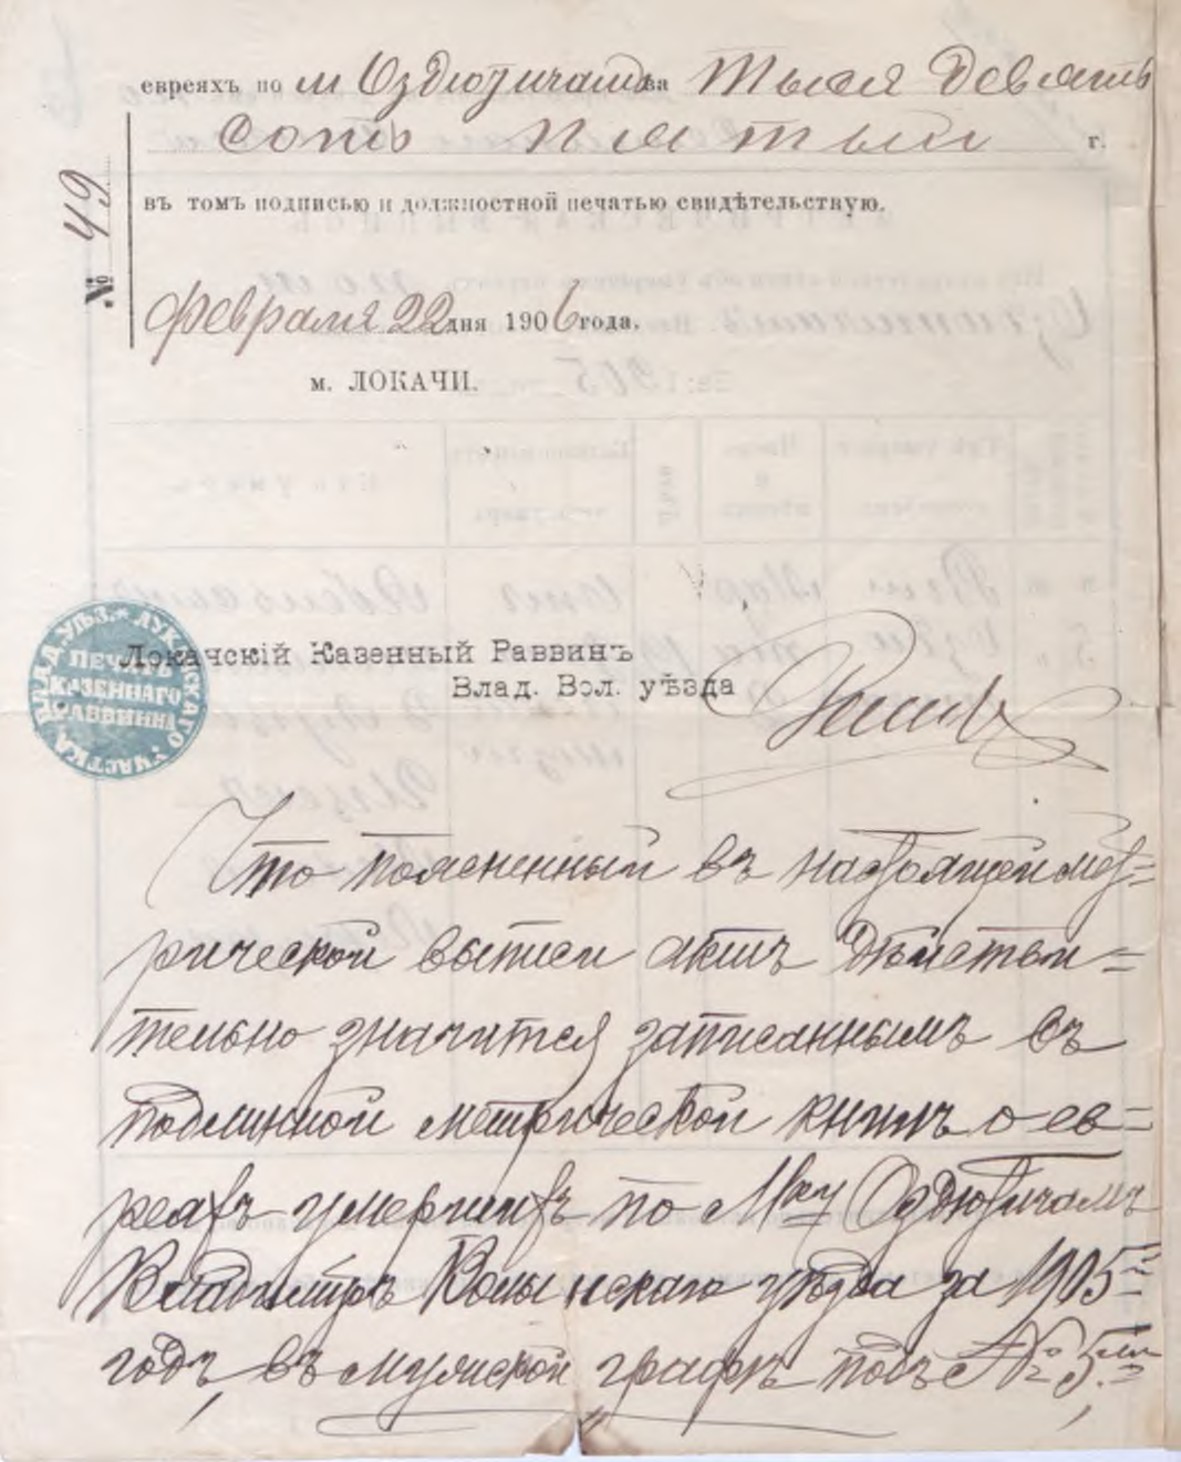 евреяхъ по м Оздютичамъ за тысяча девять
сотъ пятый г.
№ 49
въ томъ подписью и должностной печатью свидѣтельствую.
февраля 22 дня 1906 года.
м. ЛОКАЧИ.
Локачскій Казенный Раввинъ
Влад. Вол. уѣзда
ПЕЧАТЬ
КАЗЕННАГО
РАВВИНА
Что поясненный въ настоящей мет=
рической выписи актъ дѣйстви=
тельно значится записаннымъ въ
подлинной метрической книгѣ о ев=
реяхъ умершихъ по М-ку Оздютичамъ
Владиміръ Волынскаго уѣзда за 1905-й
годъ, въ мужской графѣ подъ № 5-мъ,